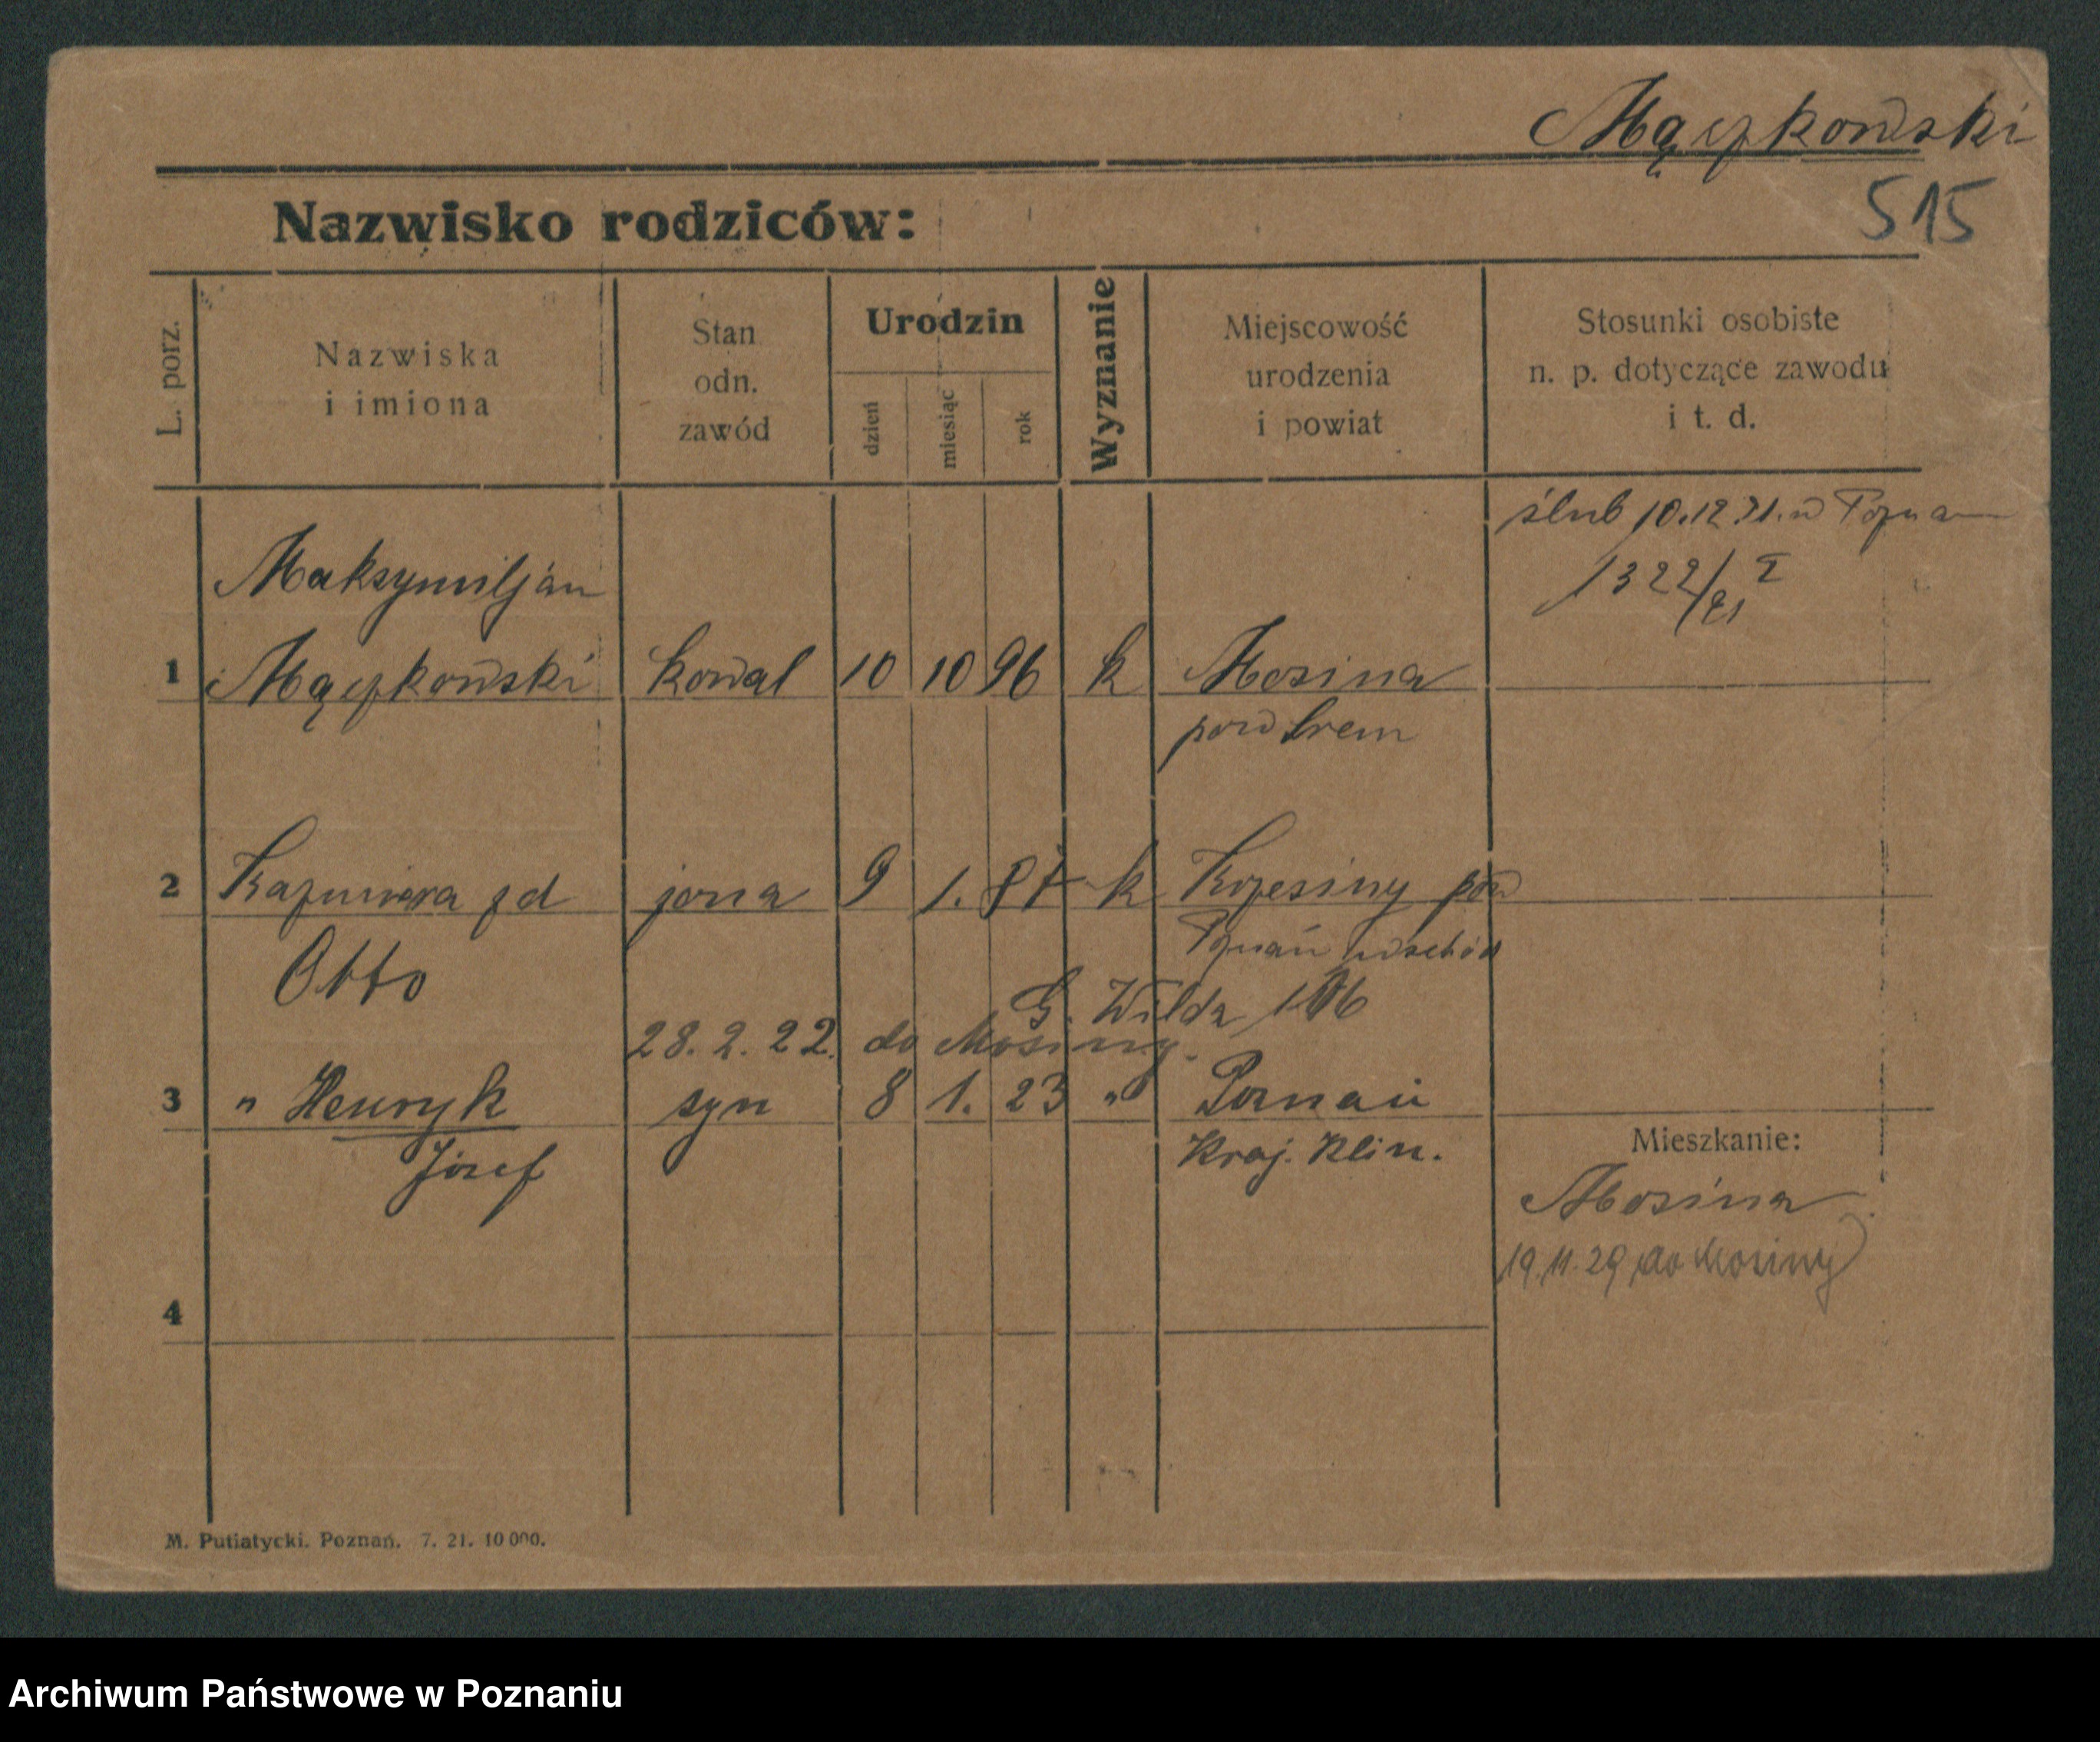 Mączkowski
515
Nazwisko rodziców:
L. porz.
Nazwiska
i imiona
Stan
odn.
zawód
Urodzin
dzień
miesiąc
rok
Wyznanie
Miejscowość
urodzenia
i powiat
Stosunki osobiste
n. p. dotyczące zawodu
i t. d.
ślub 10.12.21. w Poznan
1322/21 I
Maksymiljan
1 Mączkowski kowal 10 10 96 k Mosina
pow Śrem
2 Kazmiera zd żona 9 1. k Krzesiny pow
Otto Poznań wschód
G. Wilda
28. 2. 22. do Mosiny.
3 " Henryk syn 8 1. 23 " Poznań
Józef Kraj. Klin.
Mieszkanie:
Mosina
19.11.29 do Mosiny
4
M. Putiatycki. Poznań. 7. 21. 10 000.
Archiwum Państwowe w Poznaniu